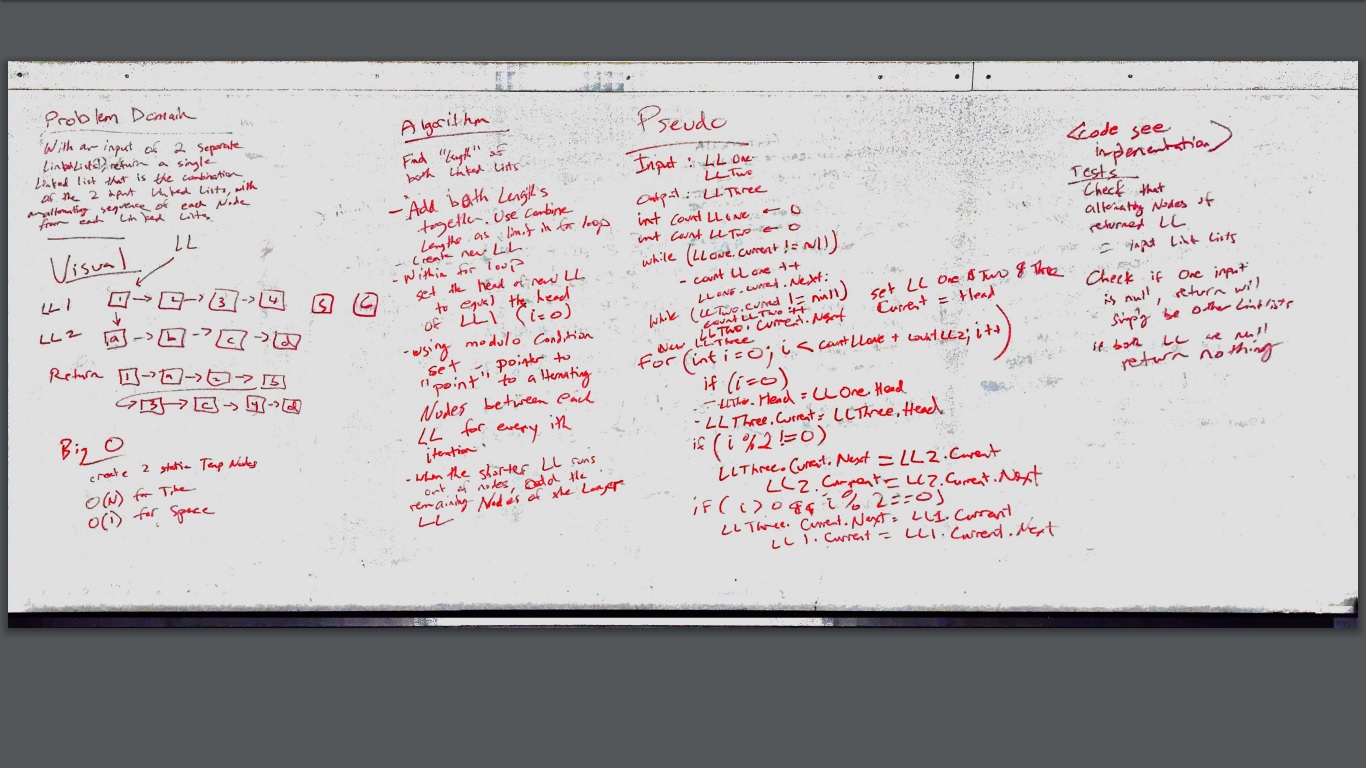 Problem Domain
With an input of 2 separate
Linked Lists, return a single
Linked list that is the combination
of the 2 input Linked Lists, with
an alternating sequence of each Node
from each Linked Lists
Visual
LL
LL 1 1 → 2 → 3 → 4 5 6
LL 2 a → b → c → d
Return 1 → a → 2 → b
→ 3 → c → 4 → d
Big O
create 2 static Temp Nodes
O(N) for Time
O(1) for Space
Algorithm
Find "Length" of
both Linked Lists
- Add both Lengths
together. Use Combine
Lengths as limit in for loop
- Create new LL
- Within for loop
set the head of new LL
to equal the head
of LL1 (i=0)
- using modulo Condition
set - pointer to
"point" to alternating
Nodes between each
LL for every ith
iteration
- when the shorter LL runs
out of nodes, add the
remaining Nodes of the Longer
LL
Pseudo
Input : LL One
LL Two
Output : LL Three
int count LL one ← 0
int count LL Two ← 0
while (LL one.current != null)
- count LL one ++
LL one.current.Next;
while (LLTwo.current != null)
count LL Two ++
LL Two.Current.Next
New LL Three
set LL One & Two & Three
Current = Head
For (int i = 0; i < count LLone + count LL2; i++)
if (i=0)
- LLThree.Head = LL One.Head
- LL Three.Current = LL Three.Head
if (i % 2 != 0)
LL Three.Current.Next = LL 2.Current
LL 2.Current = LL 2.Current.Next
if (i > 0 && i % 2 == 0)
LL Three.Current.Next = LL1.Current
LL 1.Current = LL1.Current.Next
<Code see
implementation>
Tests
Check that
alternating Nodes of
returned LL
= input Link Lists
Check if One input
is null, return will
simply be other Link Lists
if both LL are null
return nothing